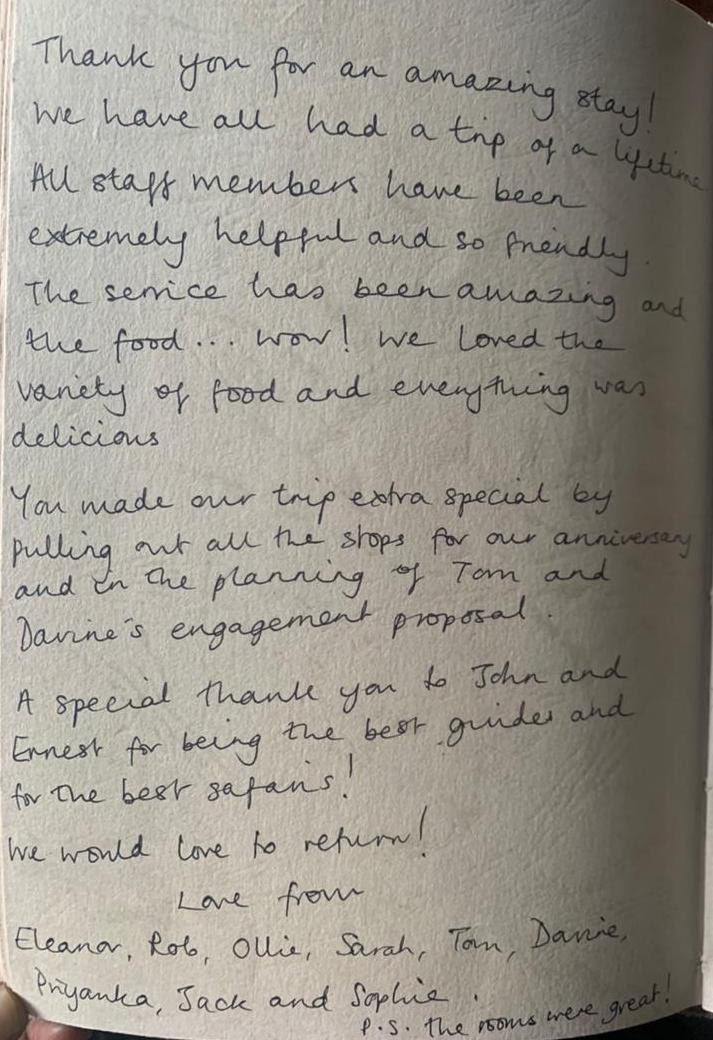 Thank you for an amazing stay!
We have all had a trip of a lifetime
All staff members have been
extremely helpful and so friendly.
The service has been amazing and
the food... wow! We loved the
variety of food and everything was
delicious
You made our trip extra special by
pulling out all the stops for our anniversary
and in the planning of Tom and
Davine's engagement proposal.
A special thank you to John and
Ernest for being the best guides and
for the best safaris!
We would love to return!
Love from
Eleanor, Rob, Ollie, Sarah, Tom, Davine,
Priyanka, Jack and Sophie.
P.S. the rooms were great!